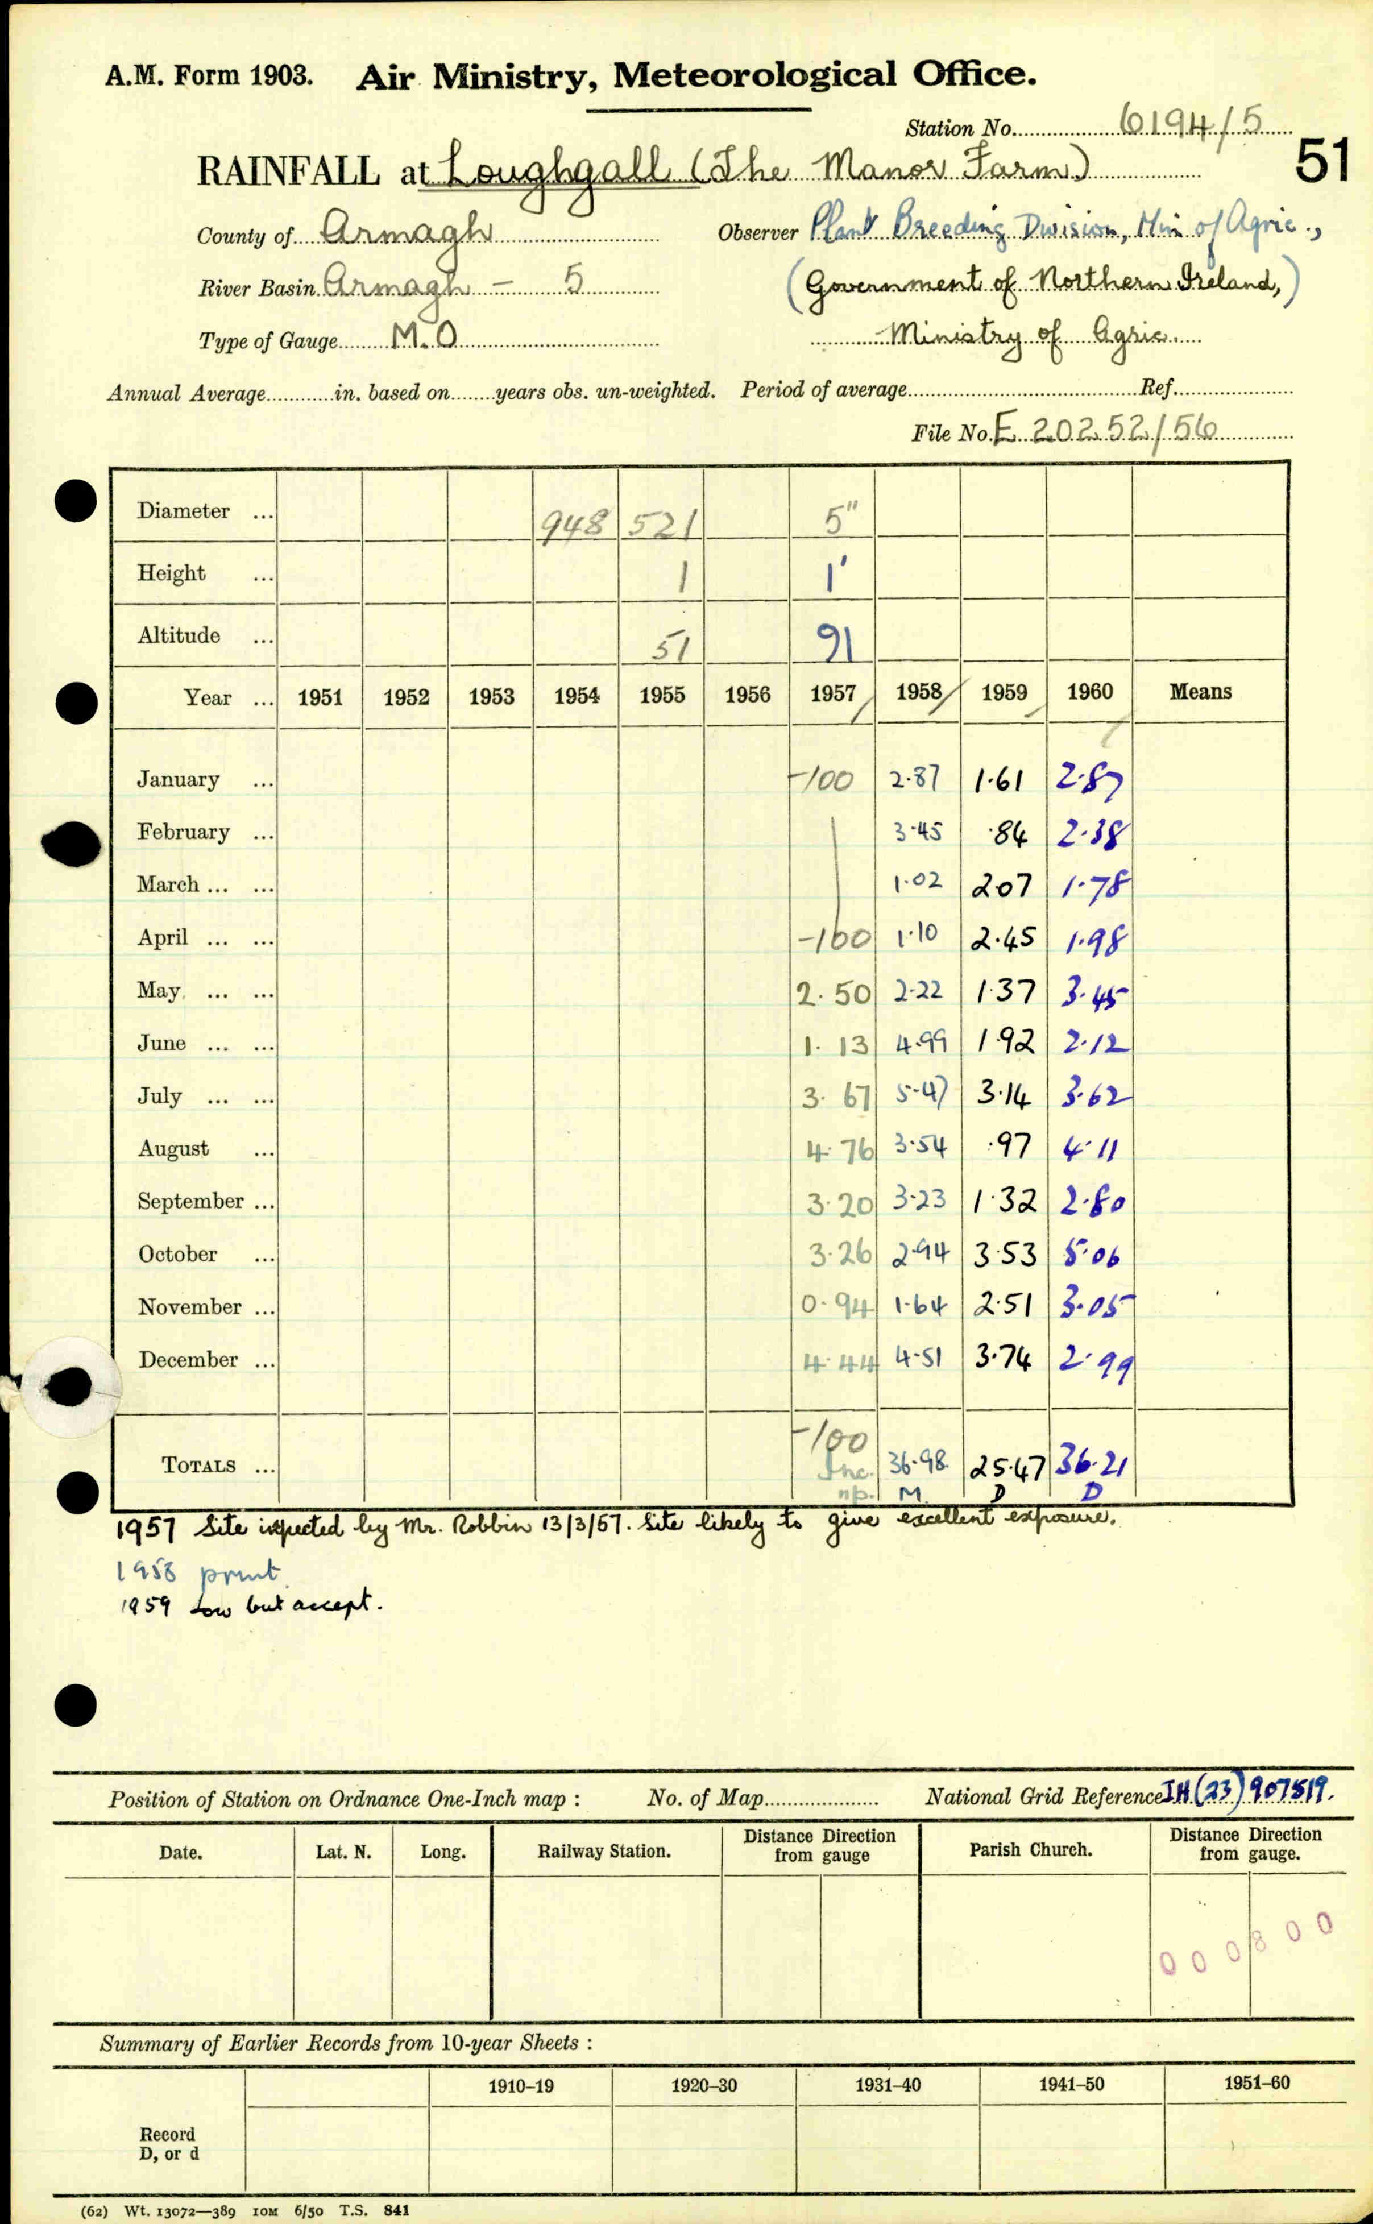 A.M. Form 1903. Air Ministry, Meteorological Office.
Station No. 6194/5
51
RAINFALL at Loughgall (The Manor Farm)
County of Armagh Observer Plant Breeding Division, Min of Agric.,
River Basin Armagh - 5 (Government of Northern Ireland,)
Type of Gauge M.O Ministry of Agric.
Annual Average in. based on years obs. un-weighted. Period of average Ref.
File No. E 20252/56
Diameter ... 948 521 5"
Height ... 1 1'
Altitude ... 51 91
Year ... 1951 1952 1953 1954 1955 1956 1957 1958 1959 1960 Means
January ... -100 2.87 1.61 2.87
February ... 3.45 .84 2.38
March ... ... 1.02 2.07 1.78
April ... ... -100 1.10 2.45 1.98
May ... ... 2.50 2.22 1.37 3.45
June ... ... 1.13 4.99 1.92 2.12
July ... ... 3.67 5.47 3.14 3.62
August ... 4.76 3.54 .97 4.11
September ... 3.20 3.23 1.32 2.80
October ... 3.26 2.94 3.53 5.06
November ... 0.94 1.64 2.51 3.05
December ... 4.44 4.51 3.74 2.99
-100
TOTALS ... Inc. 36.98 25.47 36.21
np. M D D
1957 Site inspected by Mr. Robbin 13/3/57. Site likely to give excellent exposure.
1958 print
1959 Low but accept.
Position of Station on Ordnance One-Inch map : No. of Map National Grid Reference IH (23) 907519.
Date. Lat. N. Long. Railway Station. Distance Direction from gauge Parish Church. Distance Direction from gauge.
000800
Summary of Earlier Records from 10-year Sheets :
1910–19 1920–30 1931–40 1941–50 1951–60
Record
D, or d
(62) Wt. 13072—389 IOM 6/50 T.S. 841